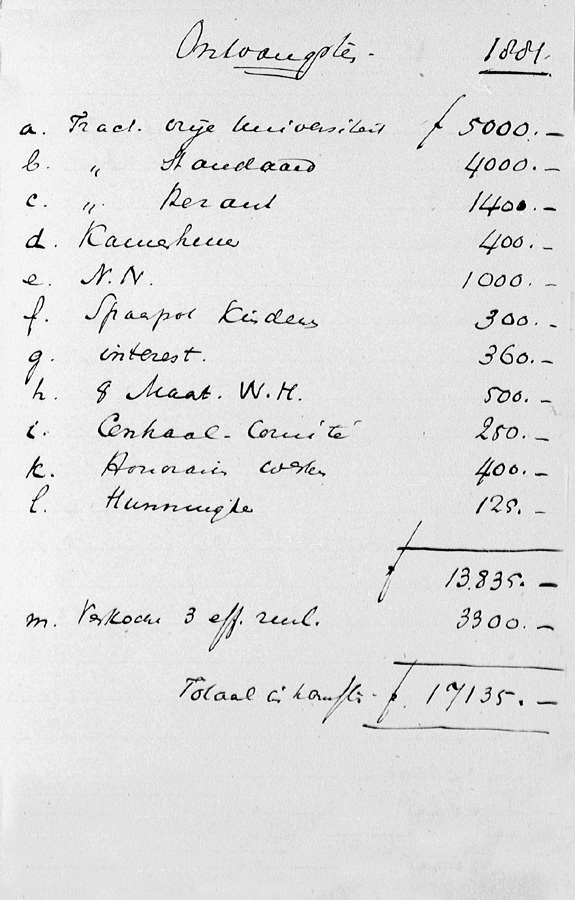 Ontvangsten. 1881.
a. Tract. vrije Universiteit f 5000.—
b. „ Standaard 4000.—
c. „ Heraut 1400.—
d. Kamerhuur 400.—
e. N.N. 1000.—
f. Spaarpot Kinderen 300.—
g. interest. 360.—
h. 8 Maat. W.H. 500.—
i. Centraal-Comité 250.—
k. Honorair werken 400.—
l. Hunninghe 125.—
f 13.835.—
m. Verkochte 3 eff. 3300.—
Totaal f 17135.—